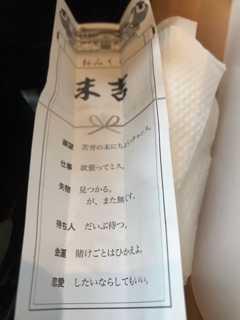 おみくじ
末吉
願望 苦労の末にちょいチャンス。
仕事 欲張ってミス。
失物 見つかる。
が、また無くす。
待ち人 だいぶ待つ。
金運 賭けごとはひかえよ。
恋愛 したいならしてもいい。